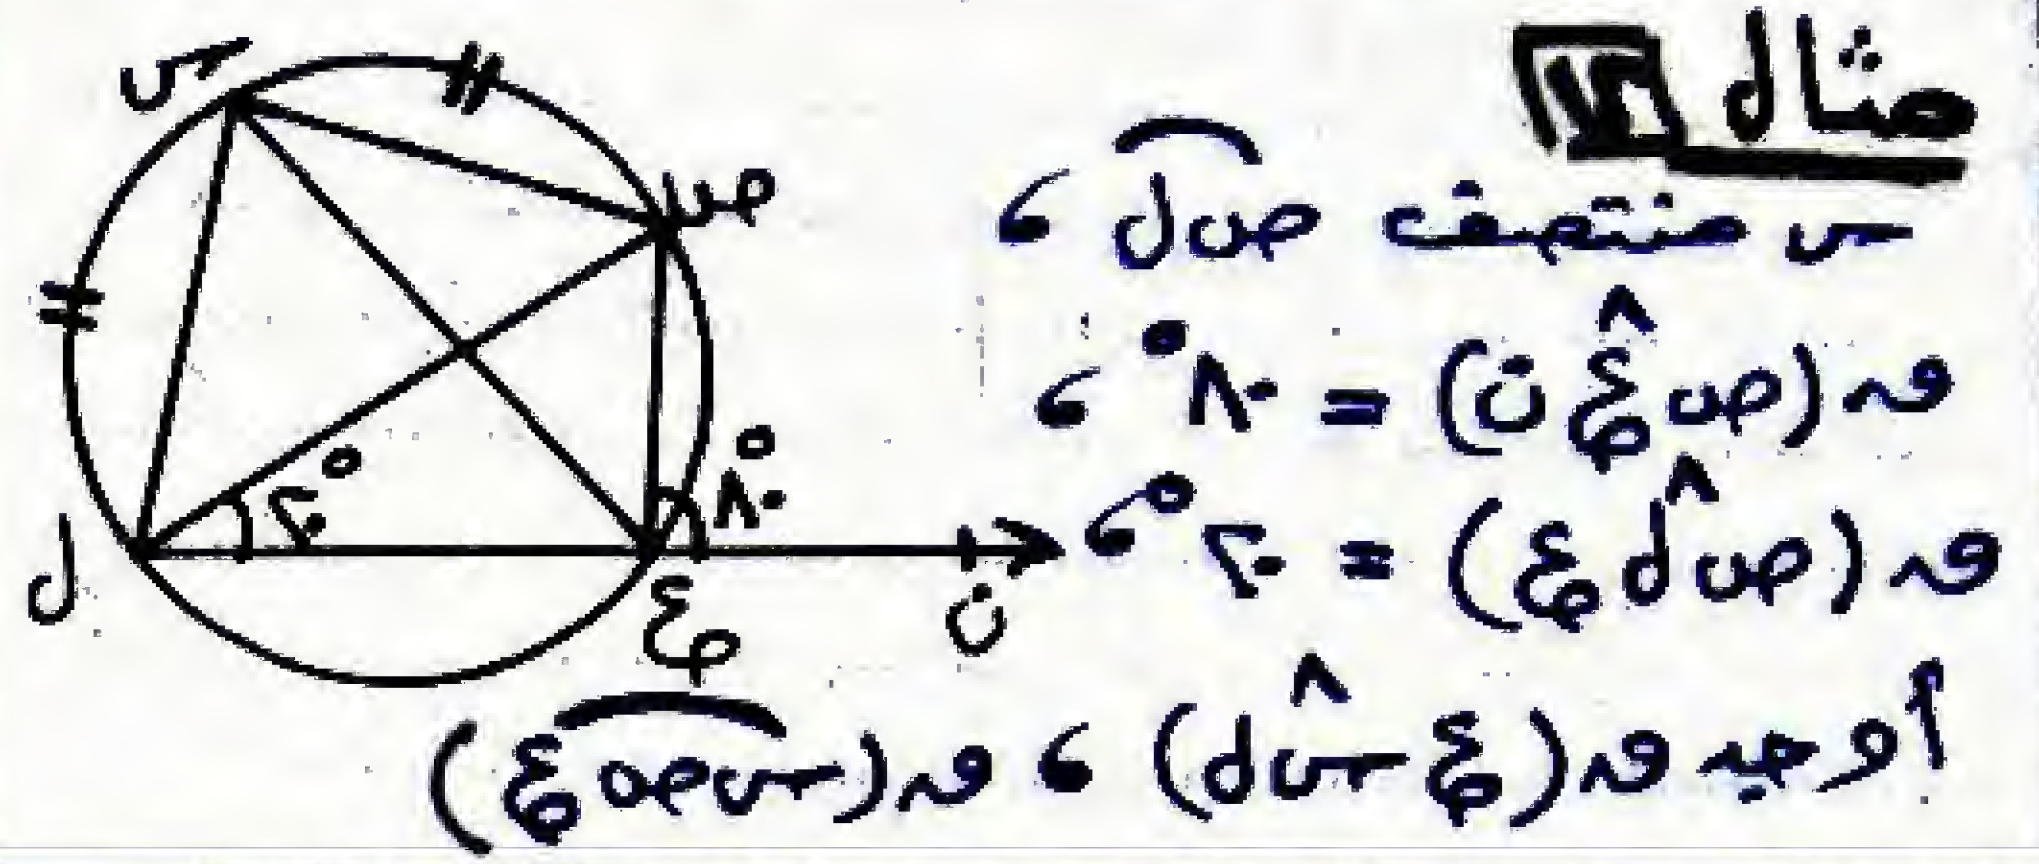 مثال
س منتصف ص ل ،
ق (ص ع ن) = ٨٠° ،
ق (ص ل ع) = ٣٠° ،
أوجد ق (ع س ل) ، ق (س ص ع)
س
ص
ل
ع
ن
٣٠°
٨٠°